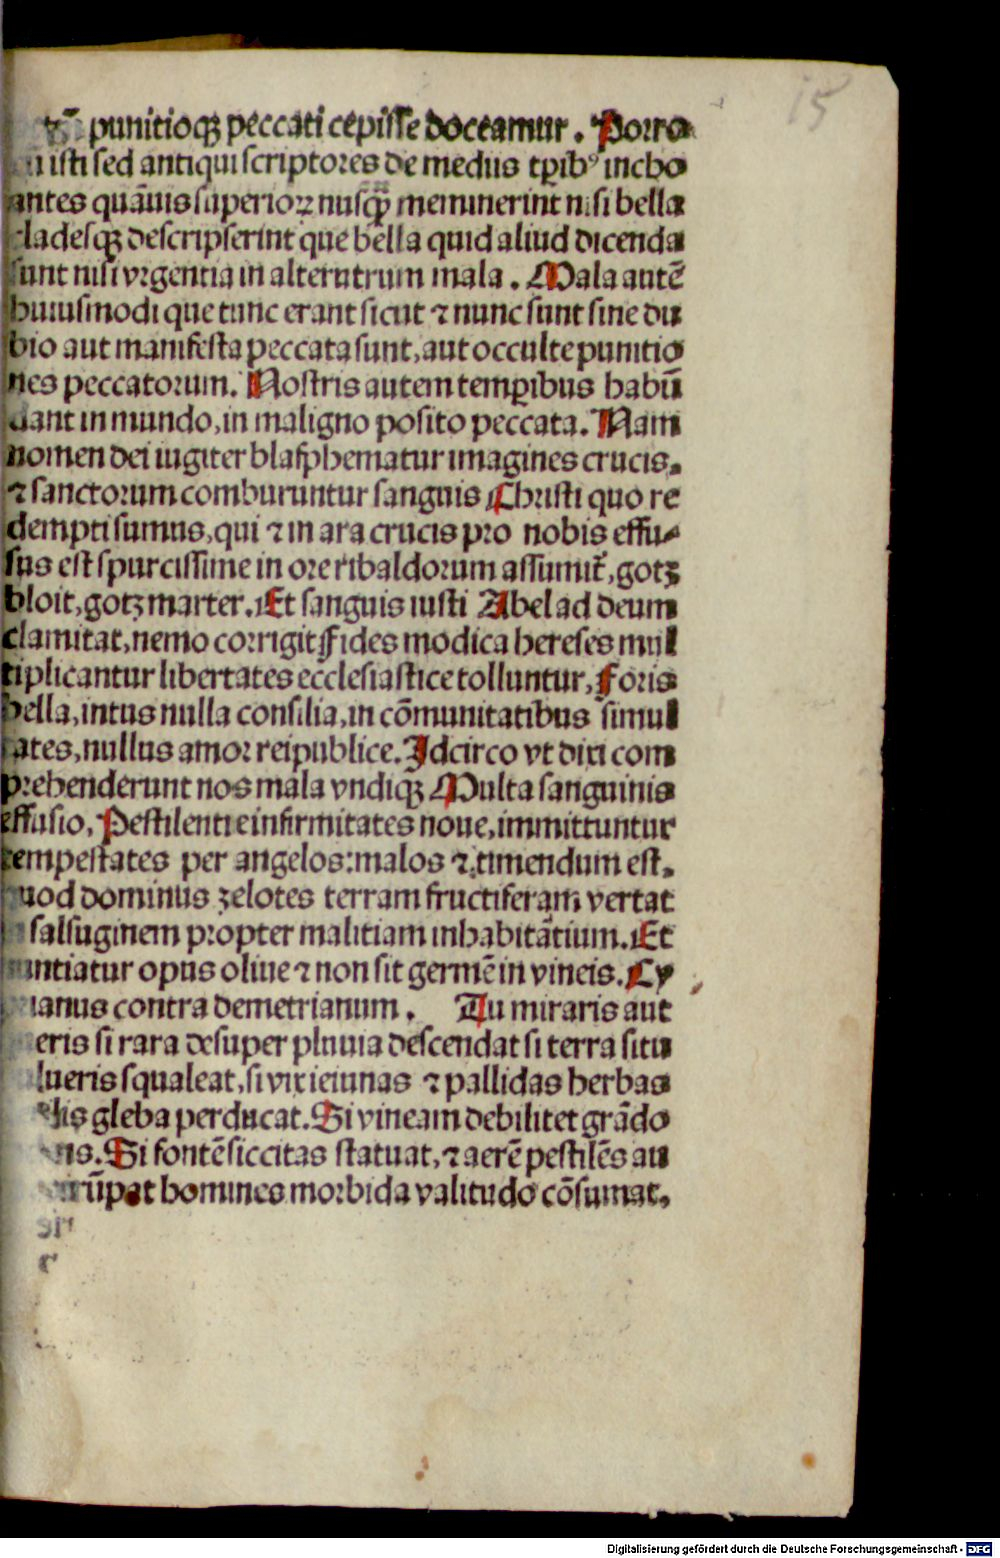 15
punitioqꝫ peccati cepisse doceamur. Porro
isti sed antiqui scriptores de medus tꝑibꝰ incho
antes quāuis superioꝝ nusꝙ̄ meminerint nisi bella
cladesqꝫ descripserint que bella quid aliud dicenda
sunt nisi vrgentia in alterutrum mala. Mala autē
huiusmodi que tunc erant sicut ⁊ nunc sunt sine du
bio aut manifesta peccata sunt, aut occulte punitio
nes peccatorum. Nostris autem temꝑibus habū
dant in mundo, in maligno posito peccata. Nam
nomen dei iugiter blasphematur imagines crucis.
⁊ sanctorum comburuntur sanguis Christi quo re
dempti sumus, qui ⁊ in ara crucis pro nobis effu-
sus est spurcissime in ore ribaldorum assumit᷑, gotz
bloit, gotz marter. Et sanguis iusti Abel ad deum
clamitat, nemo corrigit Fides modica hereses mul
tiplicantur libertates ecclesiastice tolluntur, Foris
bella, intus nulla consilia, in cōmunitatibus simul
tates, nullus amor reipublice. Idcirco vt dixi com
prehenderunt nos mala vndiqꝫ Multa sanguinis
effusio, Pestilentie infirmitates noue, immittuntur
tempestates per angelos: malos ⁊ timendum est.
quod dominus zelotes terram fructiferam vertat
salsuginem propter malitiam inhabitātium. Et
mintiatur opus oliue ⁊ non sit germē in vineis. Cy
prianus contra demetrianum. Tu miraris aut
eris si rara desuper pluuia descendat si terra situ
lueris squaleat, si vix ieiunas ⁊ pallidas herbas
gleba perducat. Si vineam debilitet grādo
Si fontē siccitas statuat, ⁊ aerē pestilēs au
rūpat homines morbida valitudo cōsumat.
Digitalisierung gefördert durch die Deutsche Forschungsgemeinschaft - DFG